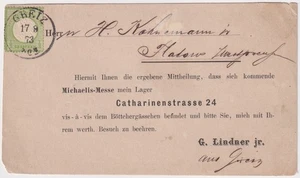 GREIZ
17 8
73
Herrn H.
Hiermit Ihnen die ergebene Mittheilung, dass sich kommende
Michaelis-Messe mein Lager
Catharinenstrasse 24
vis-à-vis dem Böttchergässchen befindet und bitte Sie, mich mit Ih-
rem werth. Besuch zu beehren.
G. Lindner jr.
aus Greiz